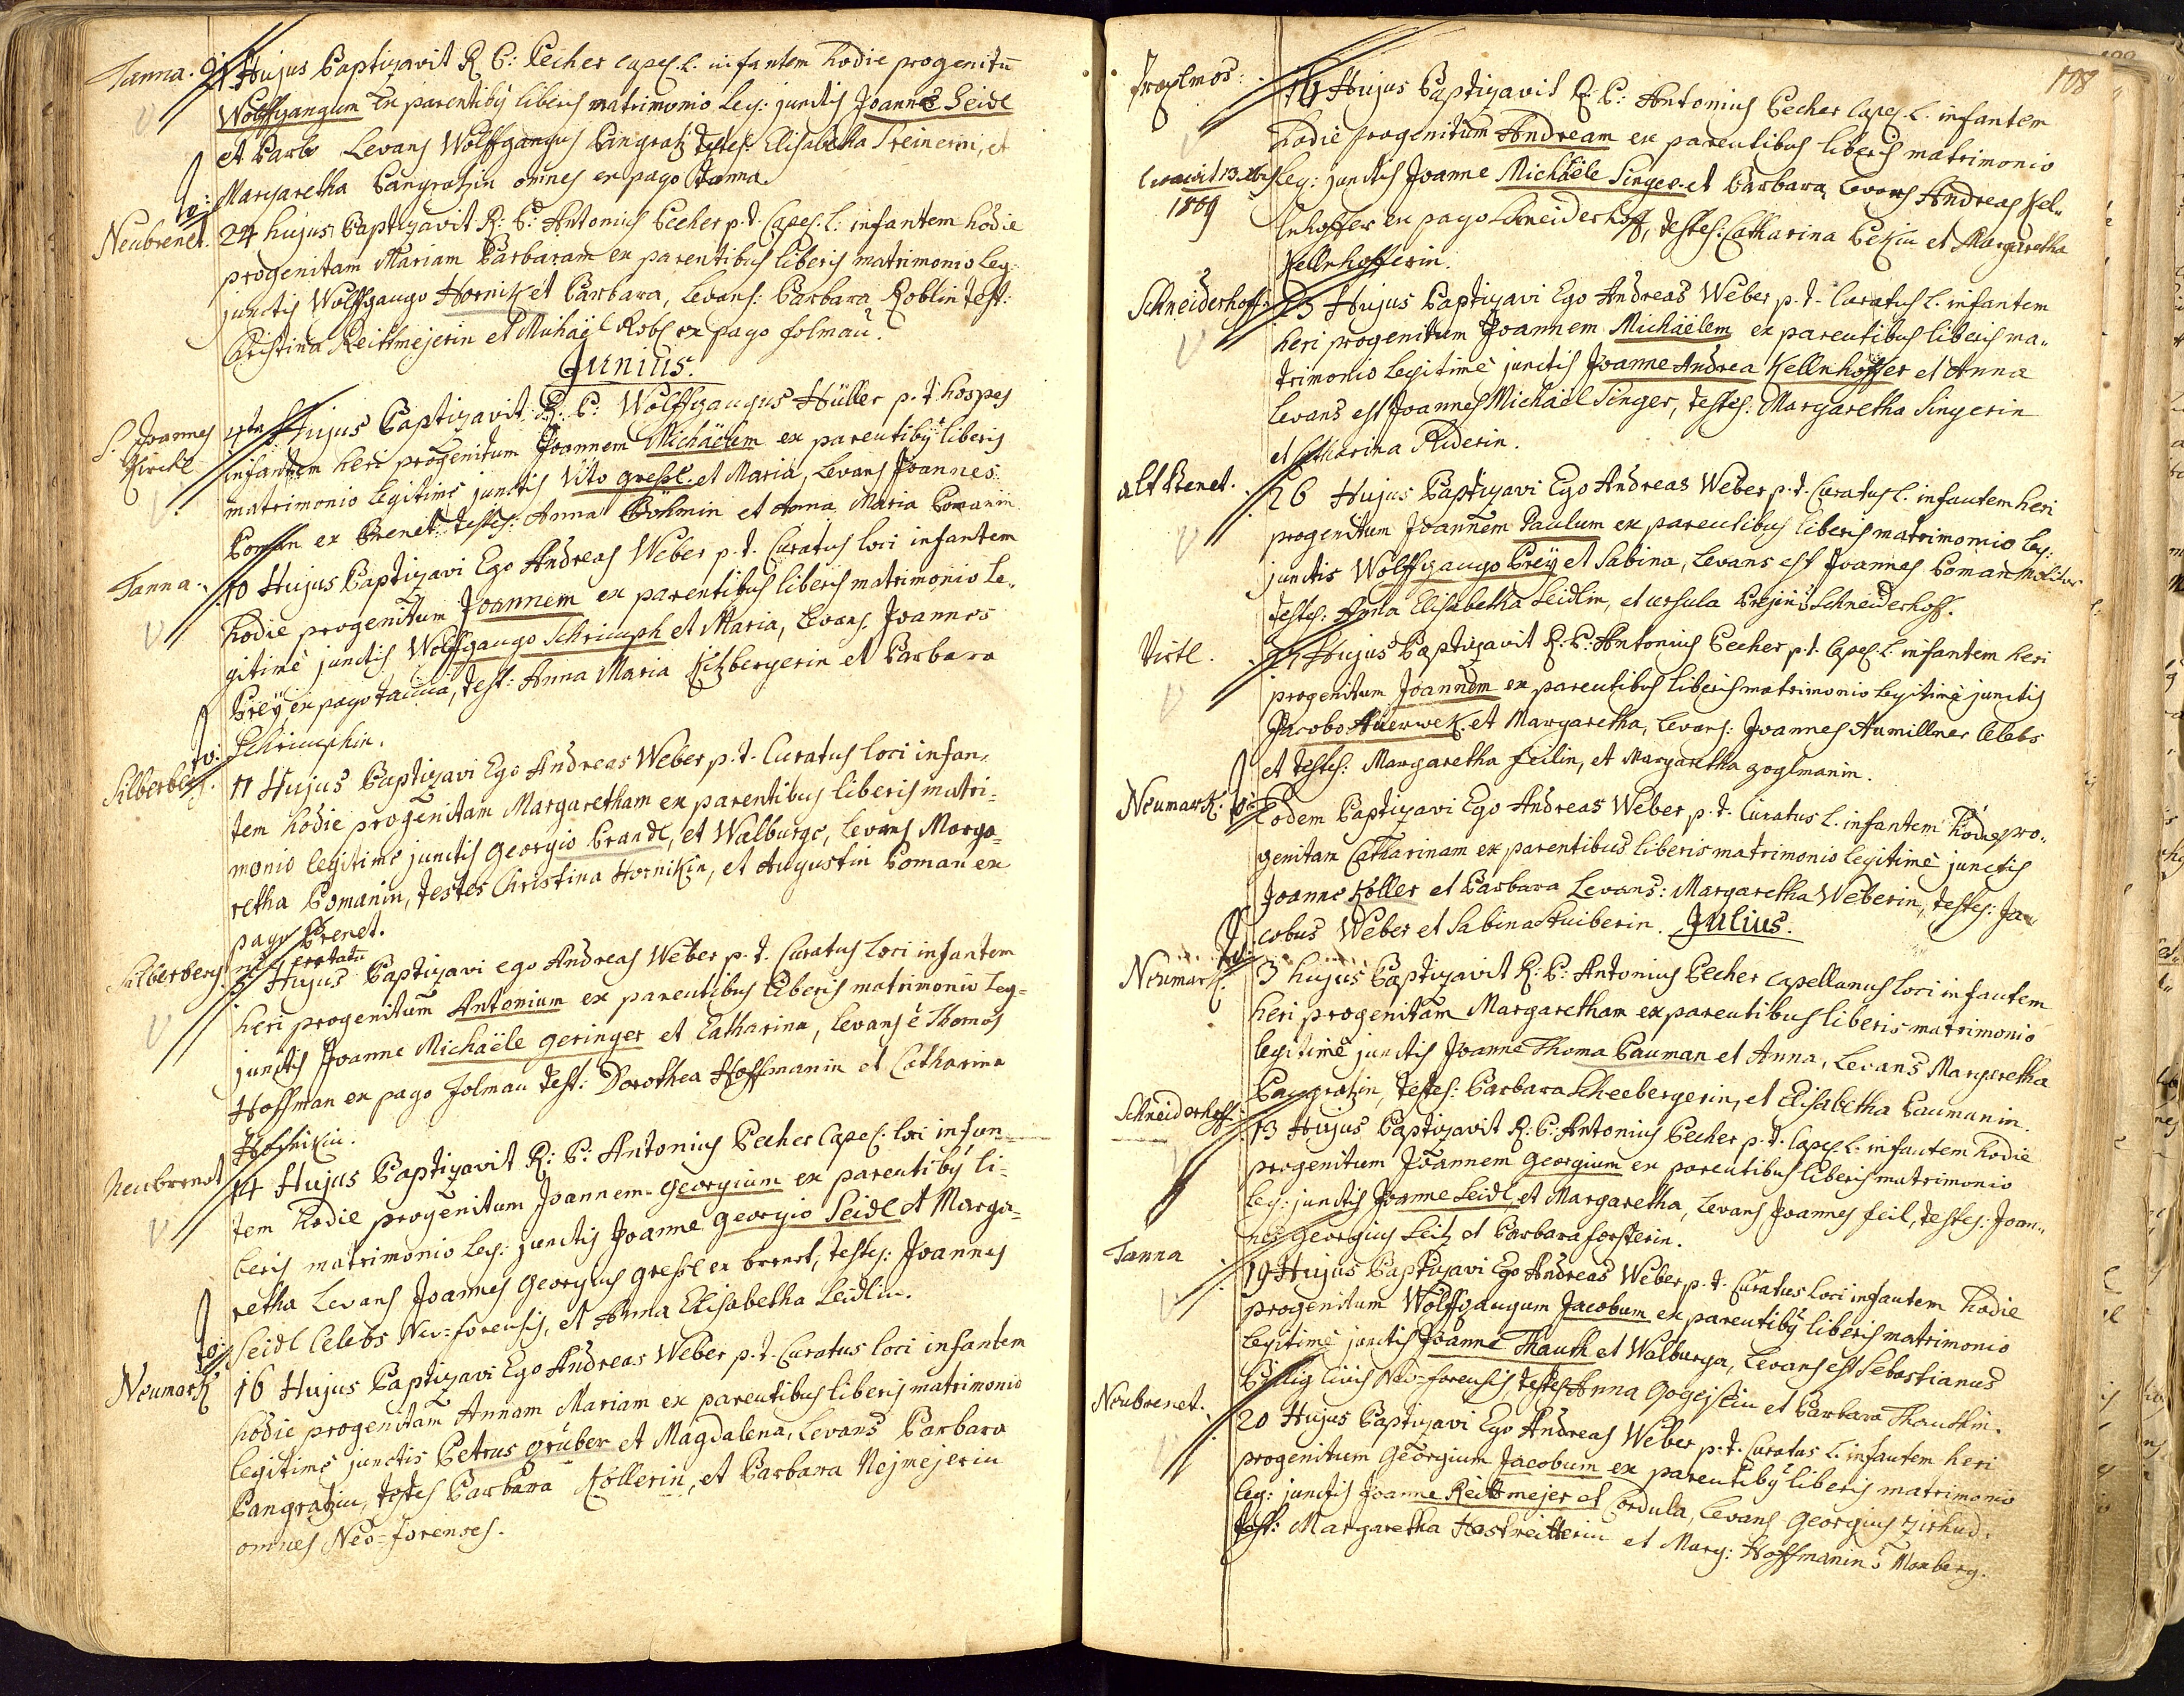 Tanna. 21 Hujus Baptizavit R. P: Pecher Capel. L. infantem hodie progenitu
Wolffgangum Ex parentiby liberis matrimonio leg: junctis Joanne Seidl
et Barb Levans Wolffgangus Pangratz testes. Elisabetha Steinerin, et
Margaretha Pangratzin omnes ex pago Tanna.
Neubrenet. 24 hujus Baptizavit R: P: Antonius Pecher p. t. Capel. L: infantem hodie
progenitam Mariam Barbaram ex parentibus liberis matrimonio leg:
junctis Wolffgango Hornik et Barbara, Levans: Barbara Roblin test:
Christina Reittmejerin et Michaÿl Robl ex pago folmau.
Junius.
S. Joannes Kirchl 4ta Hujus Baptizavit R. P: Wolffgangus Hüller p. t. hospes
infantem heri progenitum Joannem Michaëlem ex parentiby liberis
matrimonio legitime junctis Vito greßl et Maria, Levans Joannes
Poman ex Brenet. testes: Anna Böhmin et Anna Maria Pomanin
Tanna. 10 Hujus Baptizavi Ego Andreas Weber p. t. Curatus loci infantem
hodie progenitum Joannem ex parentibus liberis matrimonio le„
gitimè junctis Wolffgango Schrimph et Maria, Levans. Joannes
Preÿ ex pago Tanna, test: Anna Maria Kitzbergerin et Barbara
Schrimphin.
Silberberg. 11 Hujus Baptizavi Ego Andreas Weber p. t. Curatus loci infan„
tem hodie progenitam Margaretham ex parentibus liberis matri=
monio legitimè junctis Georgio Brandl, et Walburge, Levans Marga=
retha Pomanin, testes Christina Hornikin, et Augustin Poman ex
pago Brenet.
Silberberg. Hujus Baptizavi ego Andreas Weber p. t. Curatus loci infantem
heri progenitum Antonium ex parentibus liberis matrimonio leg=
junctis Joanne Michaële Geringer et Catharina, Levans è Thomas
Hoffman ex pago folmau test: Dorothea Hoffmanin et Catharina
Neubrenet 14 Hujus Baptizavit R: P: Antonius Pecher Capel: loci infan=
tem hodie progenitum Joannem Georgium ex parentiby li=
beris matrimonio leg: junctis Joanne Georgio Seidl et Marga=
retha Levans Joannes Georgius greßl ex brenet, testes: Joannes
Seidl Celebs Neo=forensis, et Anna Elisabetha Seidlin.
Neumark 16 Hujus Baptizavi Ego Andreas Weber p. t. Curatus loci infantem
hodie progenitam Annam Mariam ex parentibus liberis matrimonio
legitimè junctis Petrus Gruber et Magdalena, Levans Barbara
Pangratzin, testes Barbara Kollerin, et Barbara Nejmejerin
omnes Neo=forenses.
108
19 Hujus Baptizavit R: P: Antonius Pecher Capel. L. infantem
hodie progenitum Andream ex parentibus liberis matrimonio
leg: junctis Joanne Michaële Singer et Barbara, Levans Andreas Kel„
1809
lnhoffer ex pago Schneiderhoff, testes: Catharina Pekin et Margaretha
Kellnhofferin.
Schneiderhoff: 25 Hujus Baptizavi Ego Andreas Weber p. t. Curatus L. infantem
heri progenitum Joannem Michaëlem ex parentibus liberis ma„
trimonio legitimè junctis Joanne Andrea Kellnhoffer et Anna
Levans est Joannes Michaël Singer, testes: Margaretha Singerin
et Catharina Riderin.
alt Brenet. 26 Hujus Baptizavi Ego Andreas Weber p. t. Curatus L. infantem heri
progenitum Joannem Paulum ex parentibus liberis matrimonio leg:
junctis Wolffgango Preÿ et Sabina, Levans est Joannes Poman Molitor
testes: Anna Elisabetha Seidlin, et Ursula Prejin è Schneiderhoff.
Virtl. 27 Hujus Baptizavit R: P: Antonius Pecher p. t. Capel. L. infantem heri
progenitum Joannem ex parentibus liberis matrimonio legitimè junctis
Jacobo Auerwek et Margaretha, Levans: Joannes Aumillner Celebs
et testes: Margaretha feilin, et Margaretha zoglmanin.
Neumark. Eodem Baptizavi Ego Andreas Weber p. t. Curatus L. infantem hodie pro„
genitam Catharinam ex parentibus liberis matrimonio legitimè junctis
Joanne Koller et Barbara Levans: Margaretha Weberin, testes: Ja„
cobus Weber et Sabina Stuiberin. Julius.
Neumark. 3 hujus Baptizavit R: P: Antonius Pecher Capellanus loci infantem
heri progenitam Margaretham ex parentibus liberis matrimonio
legitimè junctis Joanne Thoma Pauman et Anna, Levans Margaretha
Pangratzin, testes: Barbara Scheebergerin, et Elisabetha Paumanin.
Schneiderhoff 13 Hujus Baptizavit R: P: Antonius Pecher p. t. Capel L. infantem hodie
progenitum Joannem Georgium ex parentibus liberis matrimonio
leg: junctis Joanne Seidl et Margaretha, Levans Joannes feil, testes: Joan„
nes Georgius Seitz et Barbara forsterin.
Tanna 19 Hujus Baptizavi Ego Andreas Weber p. t. Curatus loci infantem hodie
progenitum Wolffgangum Jacobum ex parentiby liberis matrimonio
legitimè junctis Joanne Thauth et Walburga, Levans est Sebastianus
Billig civis Neo=forensis, testes Anna Gogeislin et Barbara Thauthin.
Neubrenet. 20 Hujus Baptizavi Ego Andreas Weber p. t. Curatus L. infantem heri
progenitum Georgium Jacobum ex parentiby liberis matrimonio
leg: junctis Joanne Reittmejer et Cordula, Levans Georgius
test: Margaretha Hastreitterin et Marg: Hoffmanin è Maxberg.